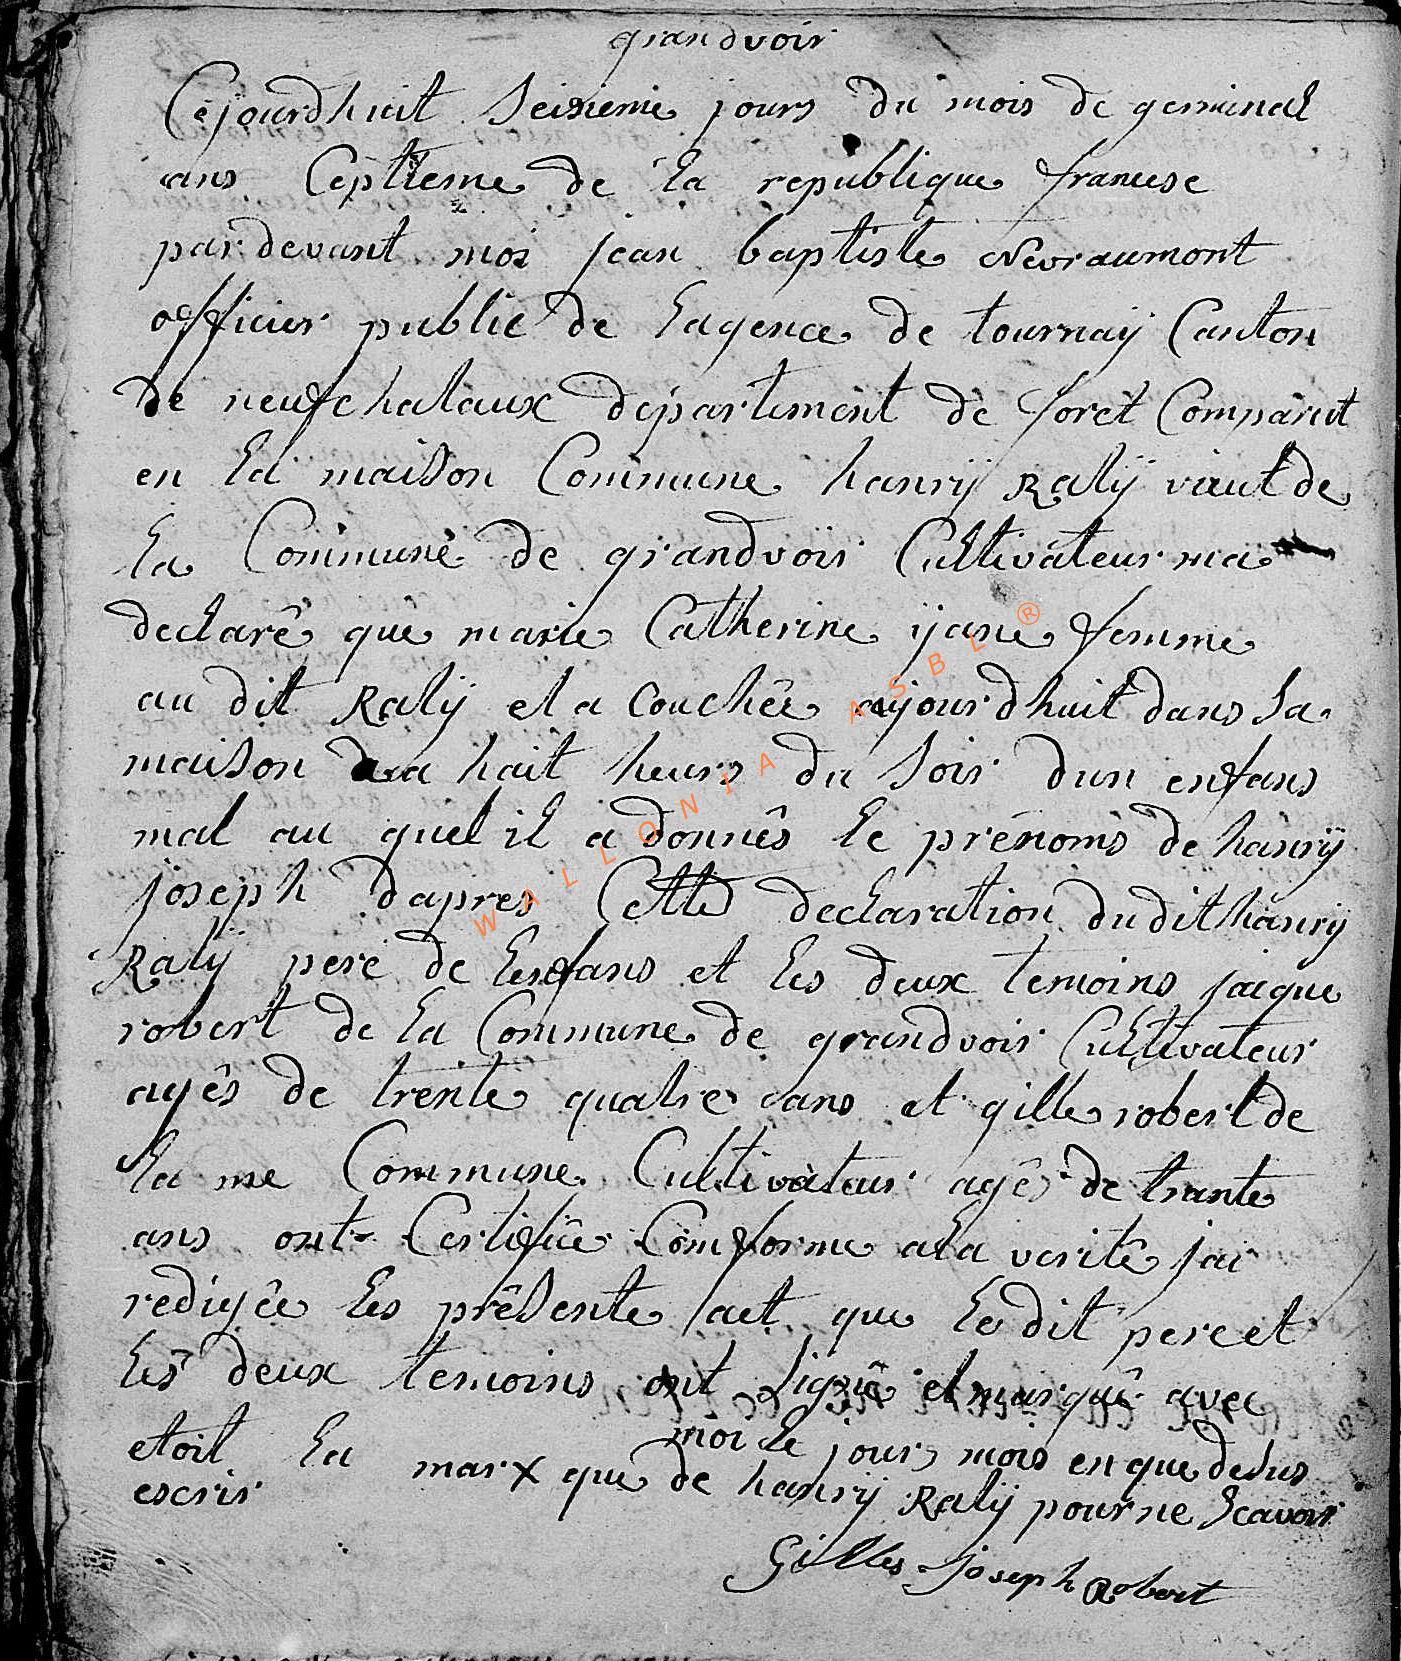 grandvoir
Cejourdhuit Seixieme jours du mois de germinal
ans Ceptieme de la republique francese
pardevant moi jean baptiste Nevraumont
officier public de lagence de tournaÿ Canton
de neufchataux département de foret Comparut
en la maison Commune hanrÿ Ralÿ de
la Commune de grandvoir Cultivateur ma
declarê que marie Catherine ÿane femme
au dit Ralÿ et a Couchêe aujourdhuit dans Sa
maison a huit heurs du Soir dun enfans
mal au quel il a donnês le prenoms de hanrÿ
joseph dapres Cette declaration dudit hanrÿ
Ralÿ pere de lenfans et les deux temoins jacque
robert de la Commune de grandvoir Cultivateur
agês de trente quatre ans et gille robert de
la me Commune Cultivateur agês de trante
ans ont Certifiêe Comforme ala veritê jai
redigêe les prêsente act que le dit pere et
les deux temoins ont Signê et marquê avec
moi le jours mois en que desus
etoit la marx que de hanrÿ Ralÿ pour ne Scavoir
escrir
Gilles Joseph Robert
WALLONIA ASBL ®